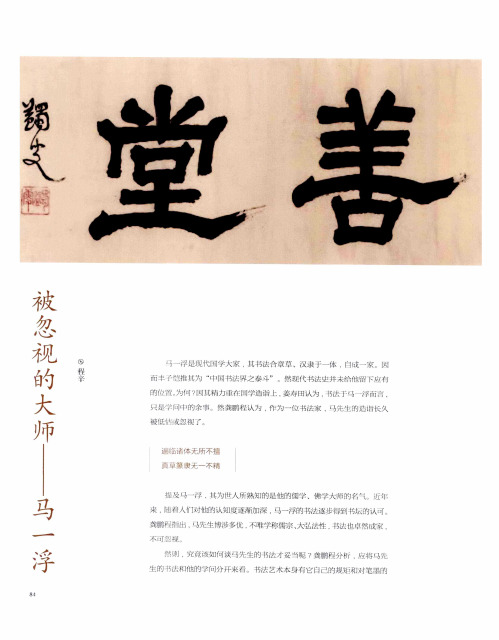 善堂
蠲叟
被忽视的大师——马一浮
◎程辛
马一浮是现代国学大家，其书法合章草、汉隶于一体，自成一家。因
而丰子恺推其为“中国书法界之泰斗”。然现代书法史并未给他留下应有
的位置。为何？因其精力重在国学造诣上，姜寿田认为，书法于马一浮而言，
只是学问中的余事。然龚鹏程认为，作为一位书法家，马先生的造诣长久
被低估或忽视了。
遍临诸体无所不擅
真草篆隶无一不精
提及马一浮，其为世人所熟知的是他的儒学、佛学大师的名气。近年
来，随着人们对他的认知度逐渐加深，马一浮的书法逐步得到书坛的认可。
龚鹏程指出，马先生博涉多优，不唯学称儒宗、大弘法性，书法也卓然成家，
不可忽视。
然则，究竟该如何谈马先生的书法才妥当呢？龚鹏程分析，应将马先
生的书法和他的学问分开来看。书法艺术本身有它自己的规矩和对笔墨的
84